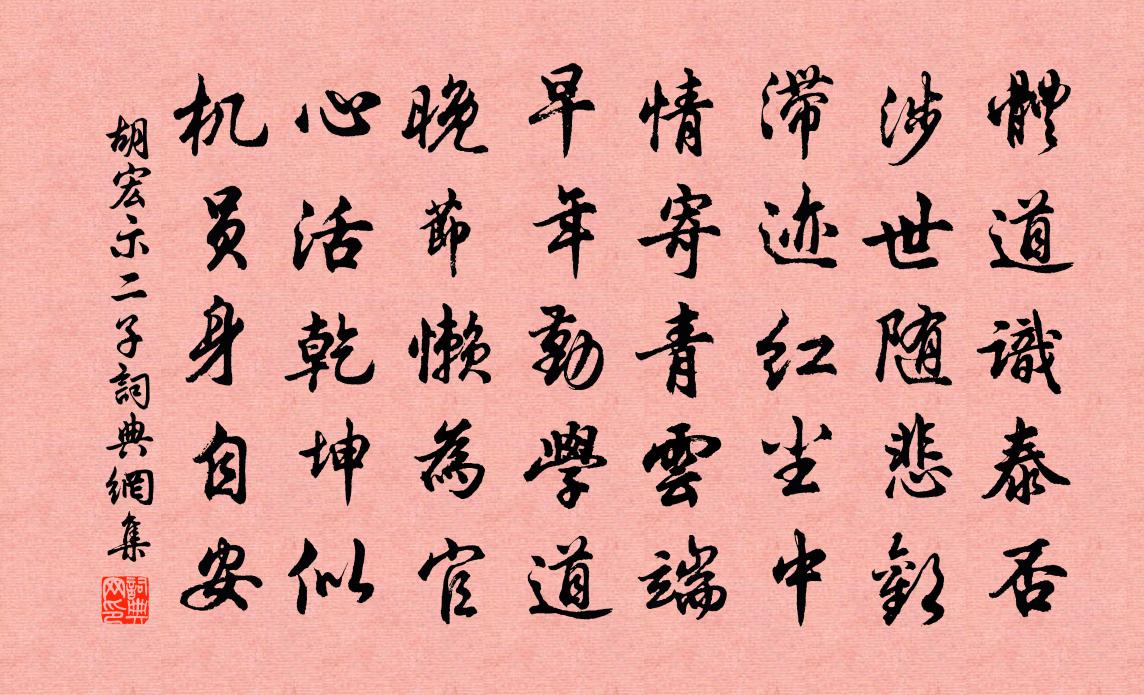 體道識泰否
涉世随悲歡
滞迹红尘中
情寄青雲端
早年勤學道
晚節懒為官
心活乾坤似
机员身自安
胡宏示二子詞典網集
詞典
网印